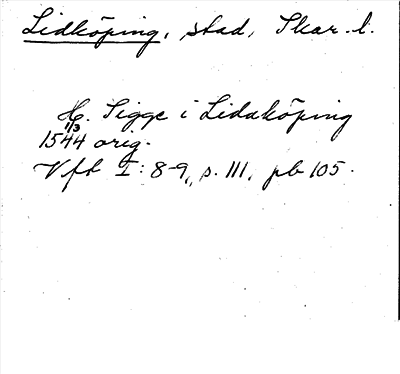 Lidköping, stad, Skar. l.
H. Sigge i Lidaköping
1/3
1544 orig.
Vft I: 8-9, s. 111, pb 105.